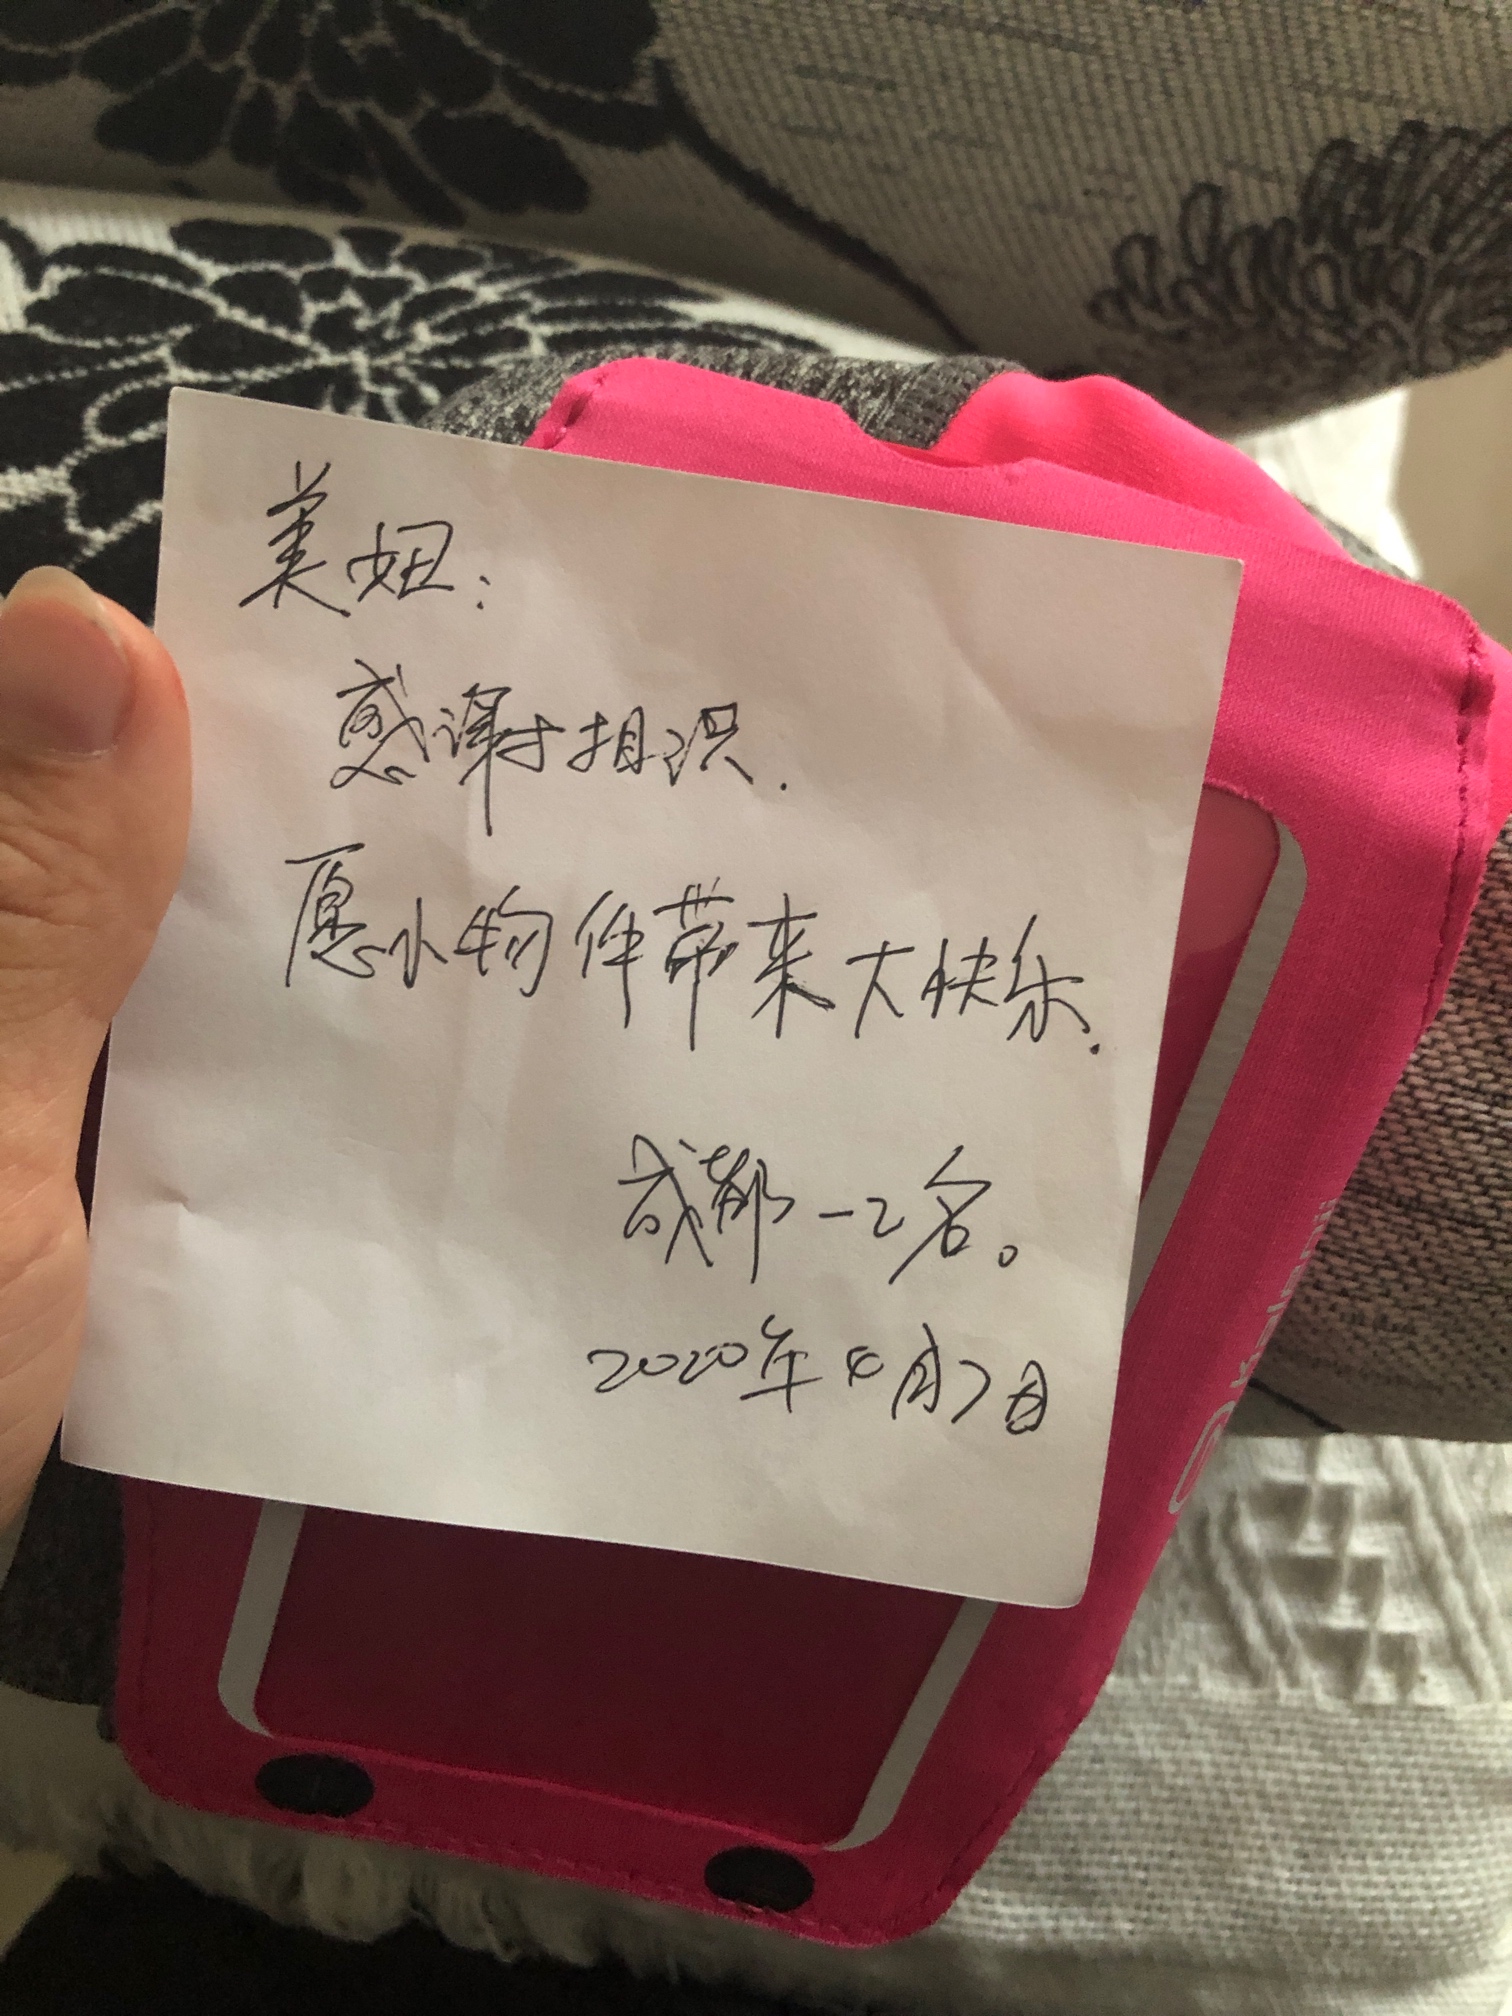 美妞：
感谢相识.
愿小物件带来大快乐.
成都一乙名。
2020年4月7日